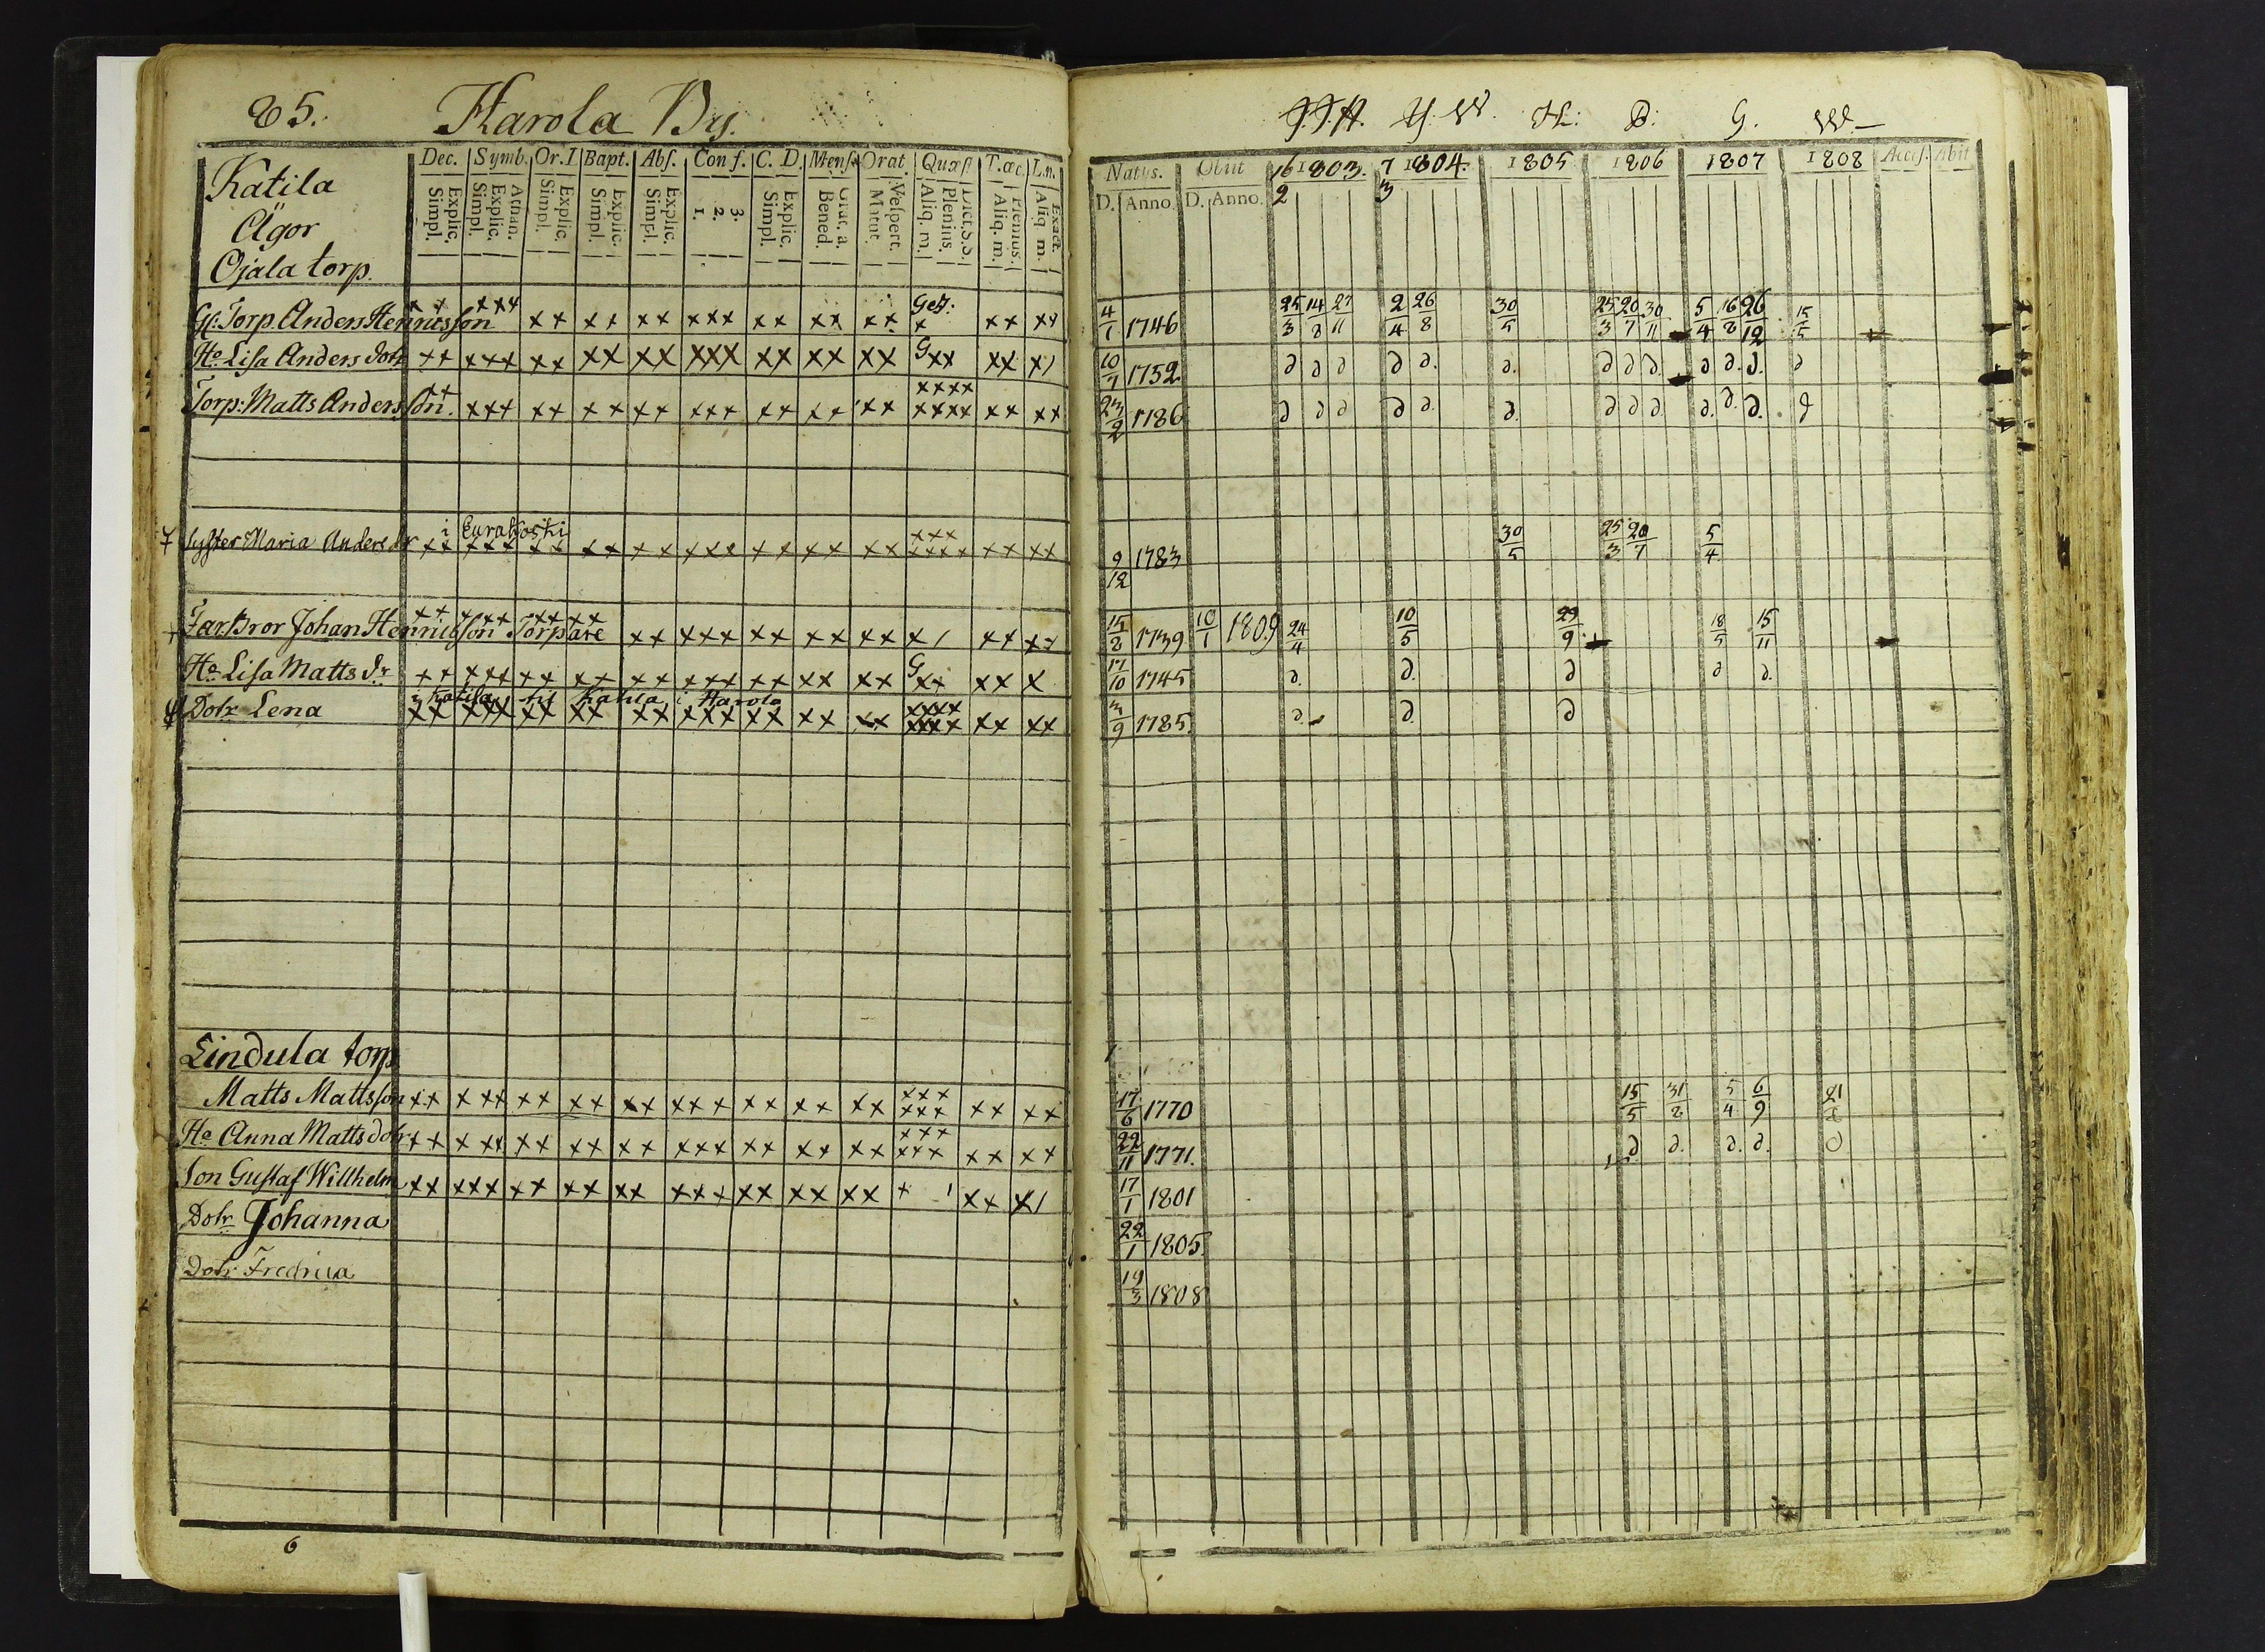 85. Harola By.
Katila
Ägor
Ojala torp.
Dec. Symb. Or. I Bapt. Abs. Conf. C. D. Mens. Orat. Quæst. T. œc. L. n.
Explic. Simpl. Athan. Explic. Simpl. Explic. Simpl. Explic. Simpl. Explic. Simpl. 3. 2. 1. Explic. Simpl. Grat. a. Bened. Vespert. Matut. Dict. S. S. Plenius. Aliq. m. Plenius. Aliq. m. Exact. Aliq. m.
Gl. Torp. Anders Henricsson
xx xxx xx xx xx xxx xx xx xx x xx xx
Ho. Lisa Anders dotr xx xxx xx xx xx xxx xx xx xx G xx xx x/
Torp: Matts Andersson.
xx xxx xx xx xx xxx xx xx xx xxxx xxxx xx xx
i Eurakoski
Syster Maria Anders dr xx xxx xx xx xx xxx xx xx xx xxx xxxx xx xx
FarBror Johan Henricsson Torpare xx xxx xx xx xx x / xx xx
Ho. Lisa Matts dr xx xxx xx xx xx xxx xx xx xx G xx xx x
i Katila till Katila i Harola
Dotr Lena xx xxx xx xx xx xxx xx xx xx xxxx xxxx xx xx
Lindula torp
Matts Mattsson xx xxx xx xx xx xxx xx xx xx xxx xxx xx xx
Ho Anna Matts dotr xx xxx xx xx xx xxx xx xx xx xxx xxx xx xx
Son Gustaf Willhelm xx xxx xx xx xx xxx xx xx xx x / xx x/
Dotr Johanna
Dotr Fredrica
6
H: B: G. W.
Natus. Obiit 16/2 1803. 7/3 1804. 1805 1806 1807 1808 Access. Abit
D. Anno D. Anno.
4/1 1746 25/3 14/8 27/11 2/4 26/8 30/5 25/3 20/7 30/11 5/4 16/8 26/12 15/5
10/7 1752 d d d d d. d. d d d. d d. d. d
23/2 1786 d d d d d. d. d d d. d. d. d. d
9/12 1783 30/5 25/3 20/7 5/4
15/2 1739 10/1 1809 24/4 10/5 29/9 18/5 15/11
17/10 1745 d. d. d d d.
3/9 1785. d. d. d
17/6 1770 15/5 31/8 5/4 6/9 21/8
22/11 1771. d. d. d. d. d
17/1 1801
22/1 1805.
19/3 1808